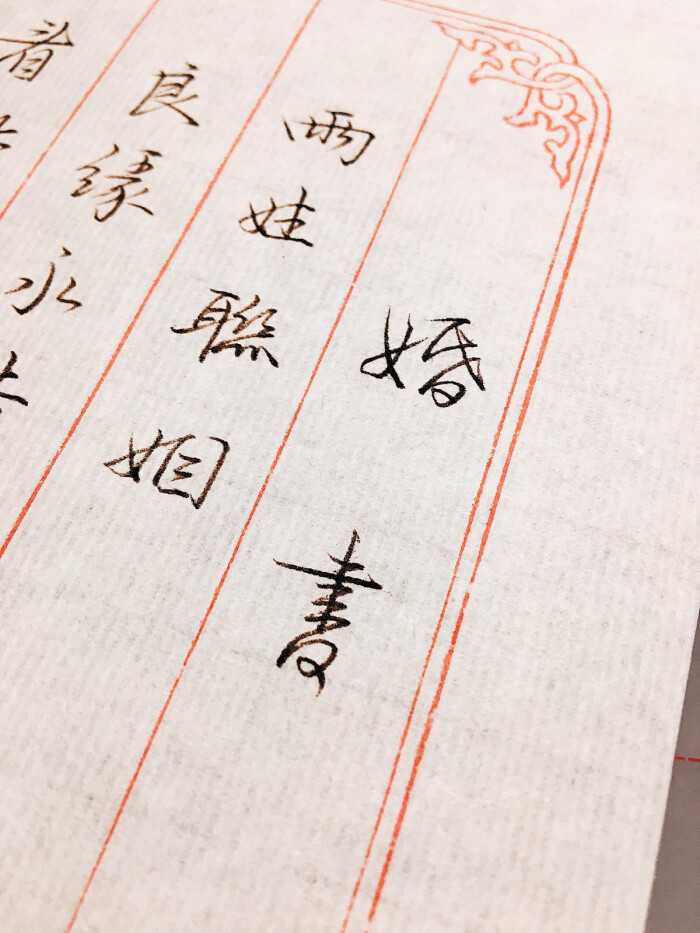 婚書
兩姓聯姻
良緣永
看